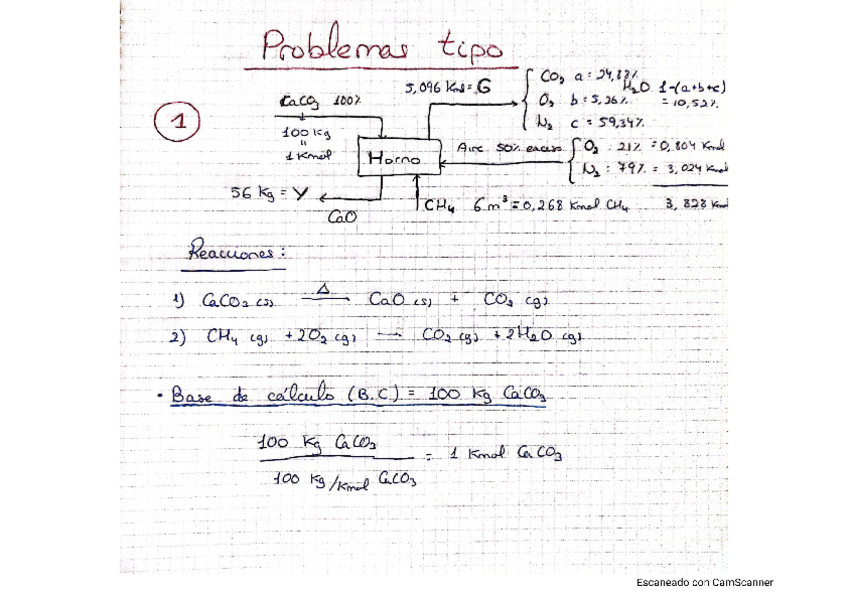 Problemas tipo
1
CaCO3 100%
100 Kg
=
1 Kmol
5,096 Kmol = G
CO2 a: 24,88%
H2O 1-(a+b+c)
O2 b: 5,26%
= 10,52%
N2 c = 59,34%
Horno
Aire 50% exceso
O2 : 21% = 0,804 Kmol
N2 : 79% = 3,024 Kmol
3,828 Kmol
56 Kg = Y
CaO
CH4 6 m³ = 0,268 Kmol CH4
Reacciones :
1) CaCO3 (s) Δ→ CaO (s) + CO2 (g)
2) CH4 (g) + 2O2 (g) → CO2 (g) + 2H2O (g)
• Base de cálculo (B.C.) = 100 Kg CaCO3
100 Kg CaCO3
= 1 Kmol CaCO3
100 Kg/Kmol CaCO3
Escaneado con CamScanner